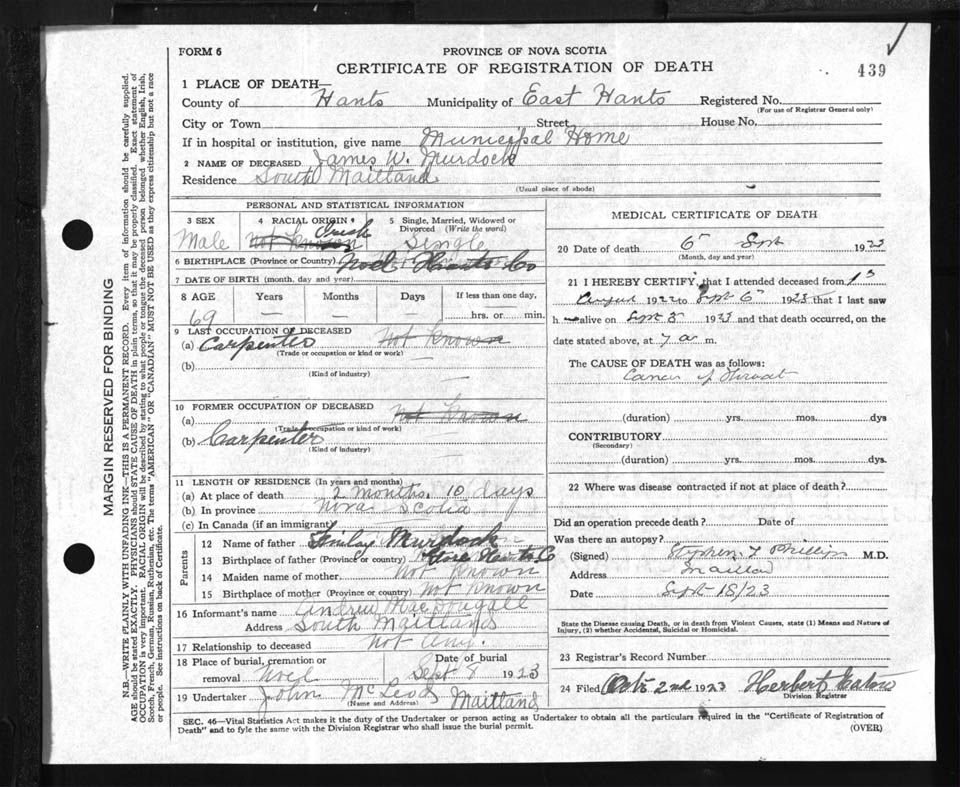 FORM 6
PROVINCE OF NOVA SCOTIA
CERTIFICATE OF REGISTRATION OF DEATH
439
1 PLACE OF DEATH—
County of Hants Municipality of East Hants Registered No.
(For use of Registrar General only)
City or Town Street House No.
If in hospital or institution, give name Municipal Home
2 NAME OF DECEASED James W. Murdock
Residence South Maitland
(Usual place of abode)
PERSONAL AND STATISTICAL INFORMATION
3 SEX 4 RACIAL ORIGIN 5 Single, Married, Widowed or Divorced (Write the word)
Male Not Known Irish Single
6 BIRTHPLACE (Province or Country) Noel Hants Co
7 DATE OF BIRTH (month, day and year)
8 AGE Years Months Days If less than one day,
69 — — — hrs. or min.
9 LAST OCCUPATION OF DECEASED
(a) Carpenter Not Known
(Trade or occupation or kind of work)
(b)
(Kind of industry)
10 FORMER OCCUPATION OF DECEASED
(a) Not Known
(Trade or occupation or kind of work)
(b) Carpenter
(Kind of industry)
11 LENGTH OF RESIDENCE (In years and months)
(a) At place of death 2 months. 10 days
(b) In province Nova Scotia
(c) In Canada (if an immigrant)
Parents
12 Name of father Finlay Murdock
13 Birthplace of father (Province or country) Hants Co
14 Maiden name of mother Not Known
15 Birthplace of mother (Province or country) Not Known
16 Informant's name Andrew MacDougall
Address South Maitland
17 Relationship to deceased Not Any.
18 Place of burial, cremation or removal Noel Date of burial Sept 8 1923
19 Undertaker John McLeod Maitland
(Name and Address)
MEDICAL CERTIFICATE OF DEATH
20 Date of death 6 Sept 1923
(Month, day and year)
21 I HEREBY CERTIFY, that I attended deceased from 1st
August 1922 to Sept 6 1923 that I last saw
h — alive on Sept 5 1923 and that death occurred, on the
date stated above, at 7 a m.
The CAUSE OF DEATH was as follows:
Cancer of Throat
(duration) yrs. mos. dys
CONTRIBUTORY
(Secondary)
(duration) yrs. mos. dys.
22 Where was disease contracted if not at place of death?
Did an operation precede death? Date of
Was there an autopsy?
(Signed) Stephen Phillips M.D.
Address Maitland
Date Sept 18/23
State the Disease causing Death, or in death from Violent Causes, state (1) Means and Nature of Injury, (2) whether Accidental, Suicidal or Homicidal.
23 Registrar's Record Number
24 Filed Oct. 2nd 1923 Herbert
Division Registrar
SEC. 46—Vital Statistics Act makes it the duty of the Undertaker or person acting as Undertaker to obtain all the particulars required in the "Certificate of Registration of
Death" and to fyle the same with the Division Registrar who shall issue the burial permit.
(OVER)
MARGIN RESERVED FOR BINDING
N.B.—WRITE PLAINLY WITH UNFADING INK—THIS IS A PERMANENT RECORD. Every item of information should be carefully supplied.
AGE should be stated EXACTLY. PHYSICIANS should STATE CAUSE OF DEATH in plain terms, so that it may be properly classified. Exact statement of
OCCUPATION is very important. RACIAL ORIGIN will be described by stating to what people or tongue the deceased person belonged whether English, Irish,
Scotch, French, German, Russian, Ruthenian, etc. The terms "AMERICAN" OR "CANADIAN" MUST NOT BE USED as they express citizenship but not a race
or people. See instructions on back of Certificate.